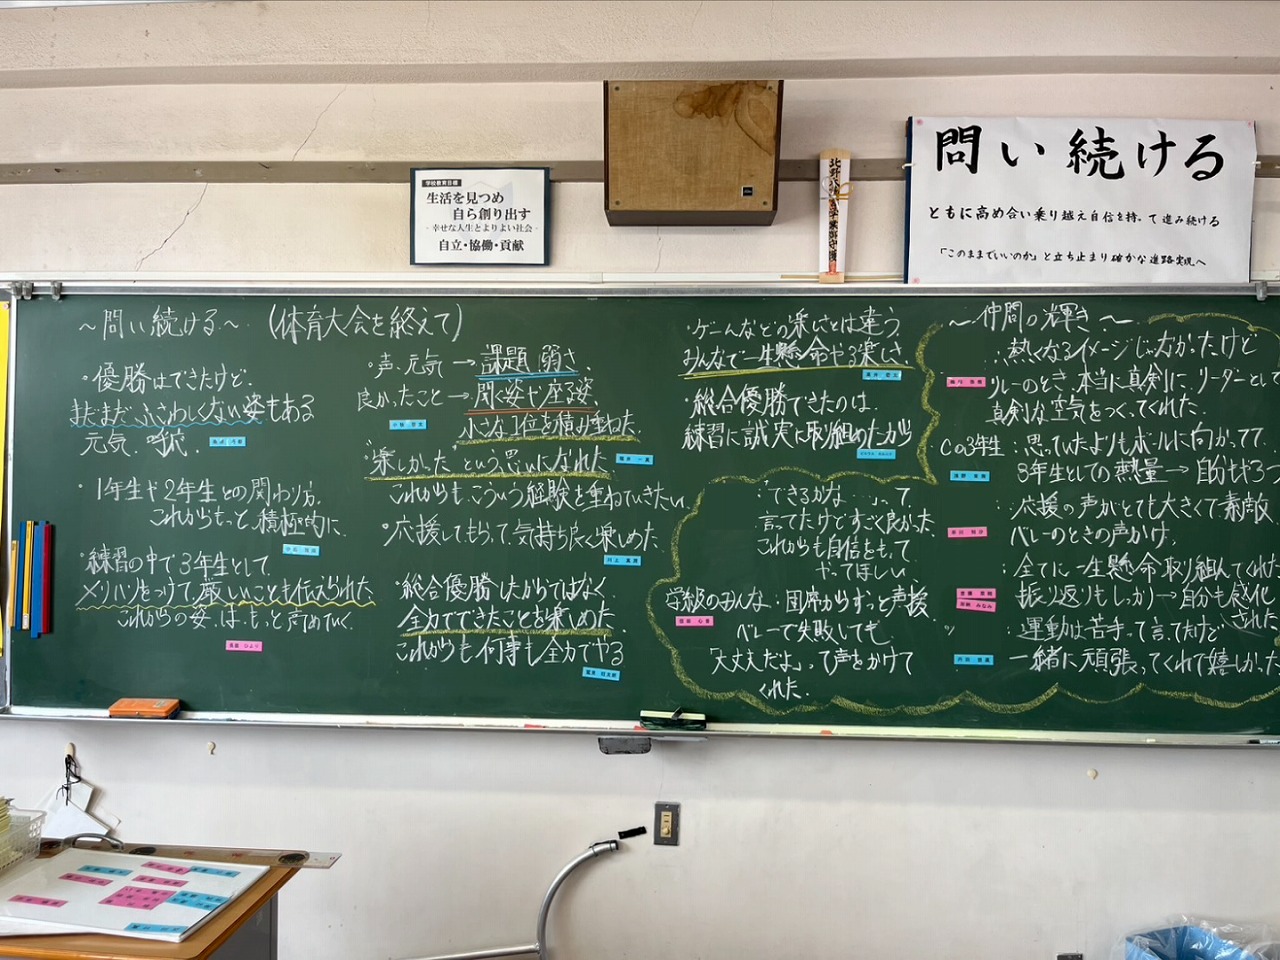 学校教育目標
生活を見つめ
自ら創り出す
- 幸せな人生とよりよい社会 -
自立・協働・貢献
問い続ける
ともに高め合い乗り越え自信を持って進み続ける
「このままでいいのか」と立ち止まり確かな進路実現へ
〜問い続ける〜 (体育大会を終えて)
・優勝はできたけど、
まだまだふさわしくない姿もある
元気、
・1年生や2年生との関わり方、
これからもっと、積極的に、
・練習の中で3年生として、
メリハリをつけて、厳しいことも伝えられた、
これからの姿、は、もっと高めていく、
・声、元気 → 課題、弱さ、
良かったこと → 聞く姿や座る姿、
小さな1位を積み重ねた、
・"楽しかった"という思いになれた、
これからも、こういう経験を重ねていきたい、
・応援してもらって、気持ち良く楽しめた、
・総合優勝したからではなく
全力でできたことを楽しめた、
これからも何事も全力でやる
・ゲームなどの楽しさとは違う
みんなで一生懸命やる楽しさ、
・総合優勝できたのは、
練習に誠実に取り組めたから
:「できるかな…」って
言ってたけどすごく良かった、
これからも自信をもって
やってほしい、
学級のみんな:団席からずっと声援
バレーで失敗しても、
「大丈夫だよ」って声をかけて
くれた、
〜仲間の輝き〜
:熱くなるイメージじゃなかったけど
リレーのとき、本当に真剣に、リーダーとして
真剣な空気をつくってくれた、
Cの3年生:思っていたよりもボールに向かってて、
3年生としての熱量 →
:応援の声がとても大きくて素敵
バレーのときの声かけ、
:全てに一生懸命取り組んでくれた
振り返りもしっかり → 自分も感化
された、
:運動は苦手って言ってたけど
一緒に頑張ってくれて嬉しかった